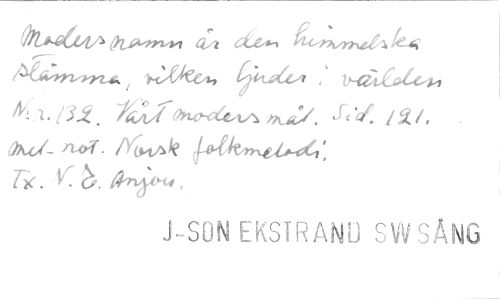 Modersnamn är den himmelska
stämma, vilken ljuder i världen
N:r. 132. Vårt modersmål. Sid. 121.
mel- not. Norsk folkmelodi.
Tx. N. E. Anjou.
J-SON EKSTRAND SW SÅNG